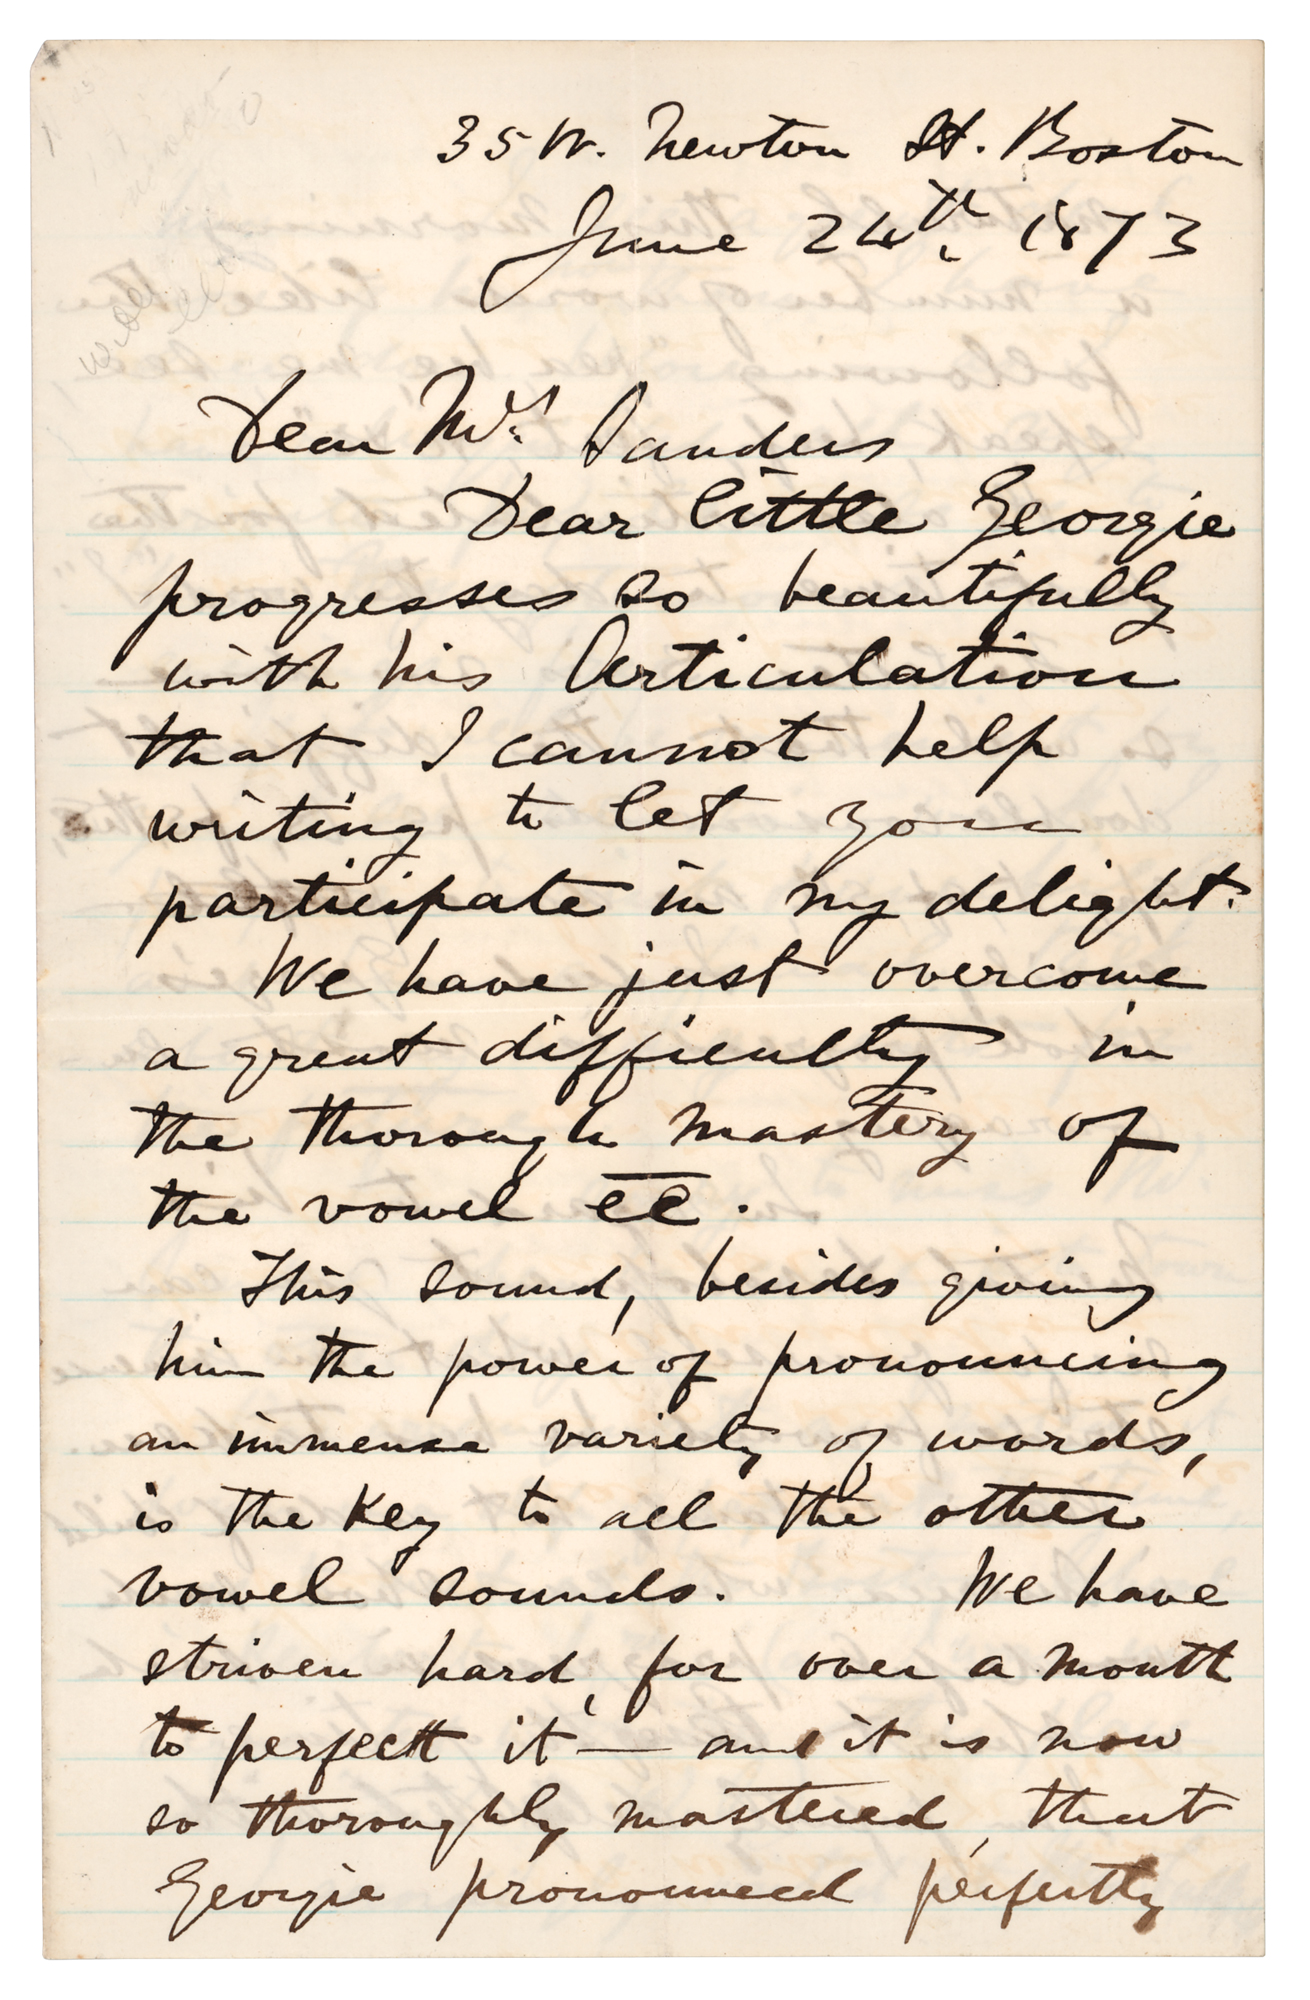 35 W. Newton St. Boston
June 24th, 1873
Dear Mrs. Sanders
Dear little Georgie
progresses so beautifully
with his Articulation
that I cannot help
writing to let you
participate in my delight.
We have just overcome
a great difficulty in
the thorough mastery of
the vowel ēē.
This sound, besides giving
him the power of pronouncing
an immense variety of words,
is the Key to all the other
vowel sounds. We have
striven hard, for over a month
to perfect it — and it is now
so thoroughly mastered, that
Georgie pronounced perfectly